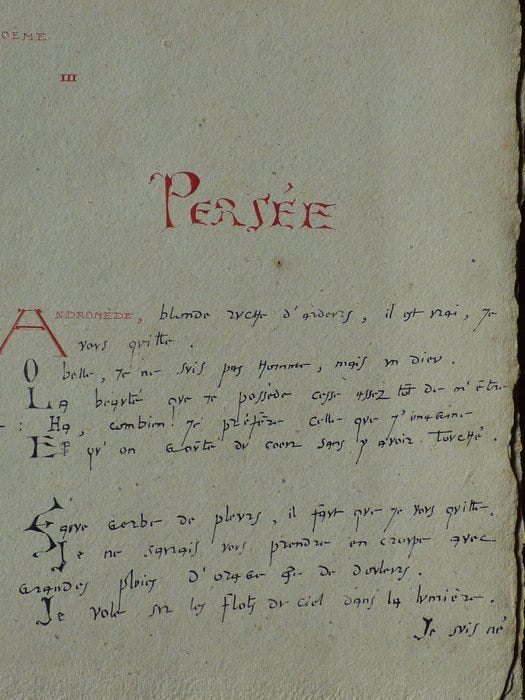 OÈME
III
PERSÉE
ANDROMÈDE, blonde ruche d'ardeurs, il est vrai, je
vous quitte.
O belle, je ne suis pas Homme, mais un dieu.
La beauté que je possède cesse assez tôt de m'être
: Ha, combien! je préfère celle que j'imagine
Et qu'on goûte du coeur sans y avoir touché.
Fauve gerbe de pleurs, il faut que je vous quitte.
Je ne saurais vous prendre en croupe avec
grandes pluies d'orage et de douleurs.
Je vole sur les flots du ciel dans la lumière.
Je suis né